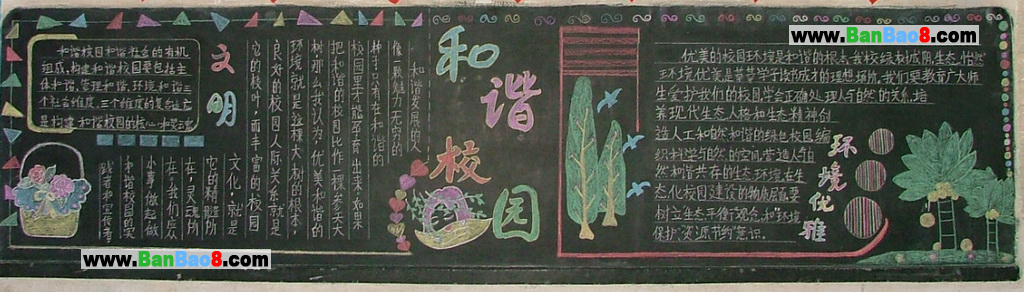 www.BanBao8.com
www.BanBao8.com
和谐校园和谐社会的有机
组成,构建和谐校园要包括主
体和谐,管理和谐,环境和谐三
个社会维度,三个维度的
是构建和谐校园的核心
文明
和谐校园
和谐发展的人
像一颗魅力无穷的
种子只有在和谐的
校园里才能孕育出来,如果
把和谐的校园比作一棵参天大
树,那么我认为,优美和谐的
环境就是这棵大树的根本,
良好的校园人际关系就是
它的枝叶,而丰富的校园
文化就是
它的精髓所
在,灵魂所
在,我们应从
小事做起,做
和谐校园的实
践者和宝卫者
优美的校园环境是和谐的根本,我校绿树成阴,生态怡然
环境优美是莘莘学子读书成才的理想场所,我们要教育广大师
生爱护我们的校园学会正确处理人与自然的关系,培
养现代生态人格和生态精神创
造人工和自然和谐的绿色校园编
织科学与自然的空间,营造人与自
然和谐共存的生态环境,在生
态化校园建设的物质层面要
树立生态平衡观念,和"环境
保护""资源节约"意识.
环境优雅
www.BanBao8.com
www.BanBao8.com